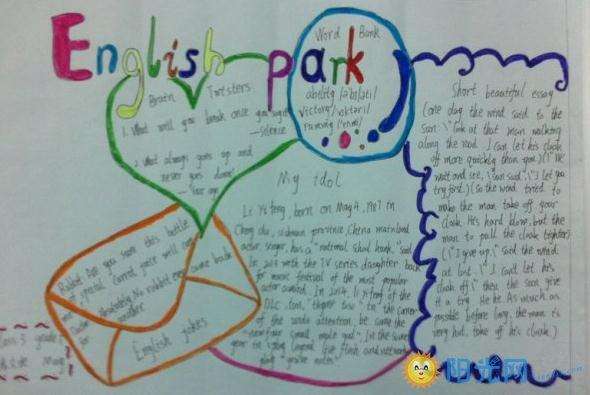 English park
Word Bank
ability /ə'biləti/
victory /'viktəri/
running /'rʌniŋ/
Brain Twisters
1. What will you break once you say it
—silence
2. What always goes up and
never goes down
—Your age
My idol
Li Yifeng, born on May 4, 1987 in
Cheng du, sichuan province, China mainland
actor, singer, has a "national school hunk" said.
In 2013 with the TV series daughter back
for music festival of the most popular
actor award. In 2014, Li Yifeng of the
in the corner
of the words attention, be sung the
male god." In the same
Short beautiful essay
(one day the wind said to the
sun, "Look at that man walking
along the road. I can let his cloak
off more quickly than you.) ("We
wait and see," sun said, "I let you
try first.) (So the wind tried to
make the man take off your
cloak. He's hard blow, but the
man to pull the cloak tighter.)
("I give up," said the wind
at last. "I can't let his
cloak off." then the sun give
it a try. He be as much as
possible before long, the man is
very hot, take off his cloak.)
Rabbit: Are you sure this bottle
of special carrot juice will cure
me?
Doctor: Absolutely. No rabbit ever came back
for another
English jokes
Class 3 grade
阳光网